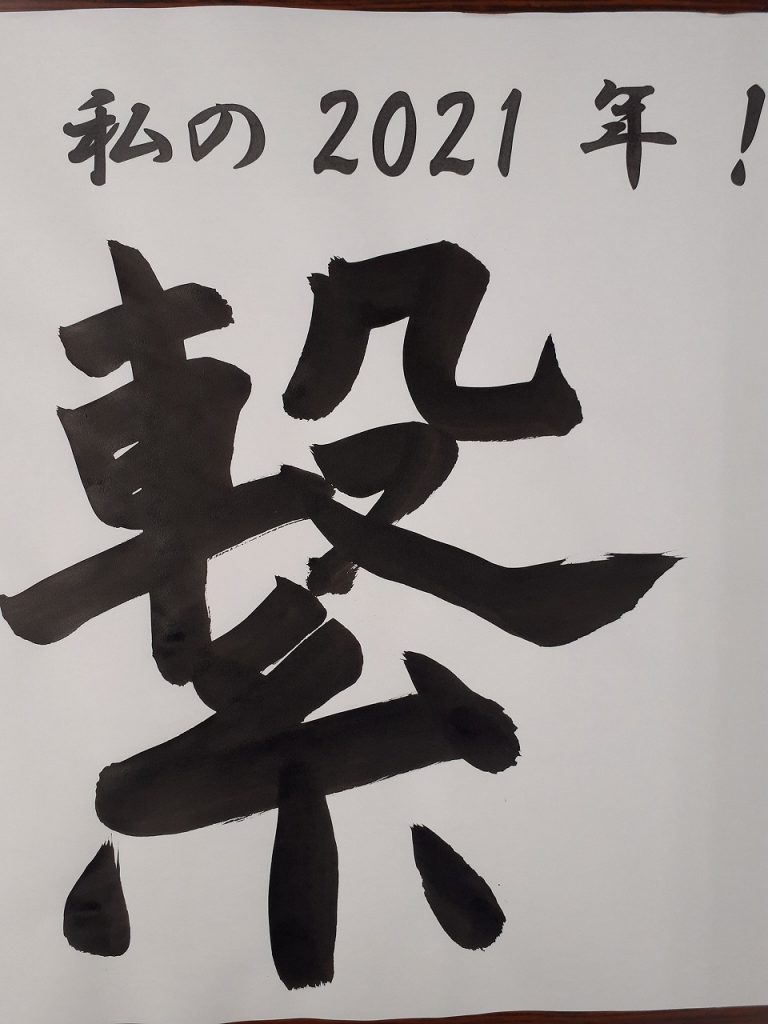 私の2021年！
繋